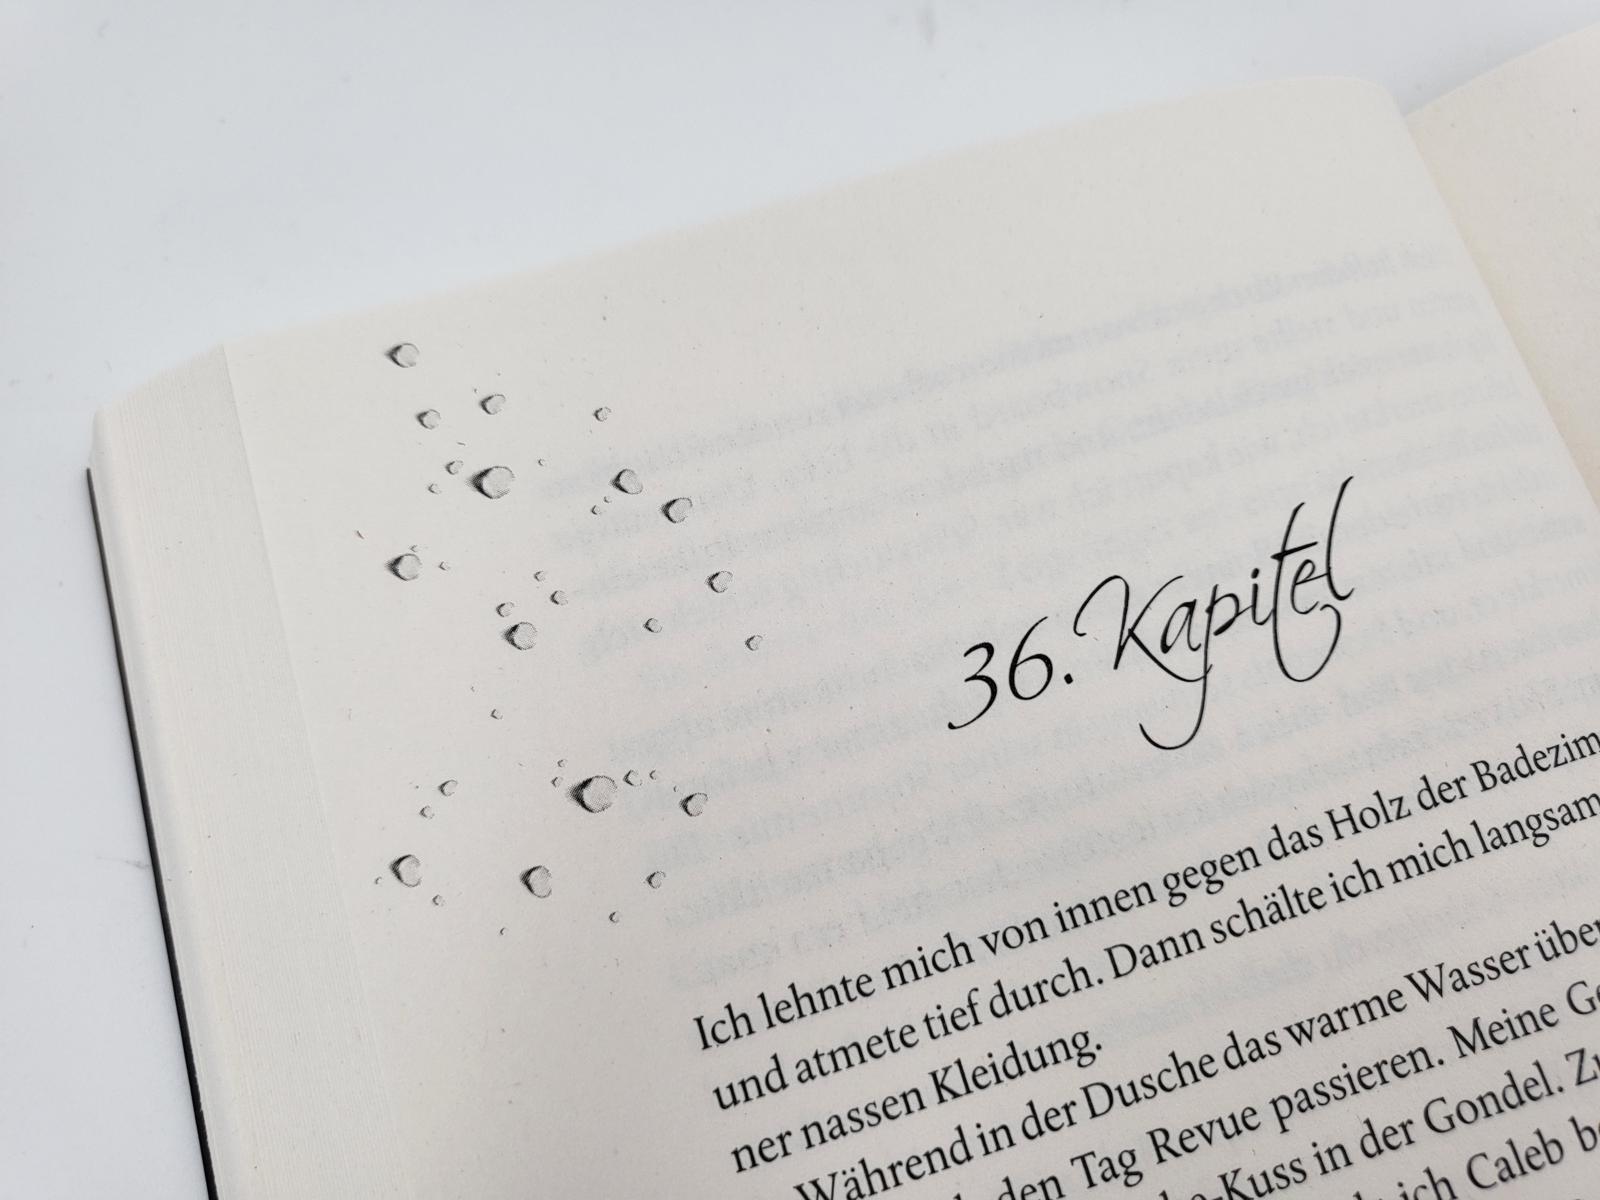 36. Kapitel
Ich lehnte mich von innen gegen das Holz der
und atmete tief durch. Dann schälte ich mich langsam
ner nassen Kleidung.
Während in der Dusche das warme Wasser über
den Tag Revue passieren. Meine
Kuss in der Gondel.
ich Caleb